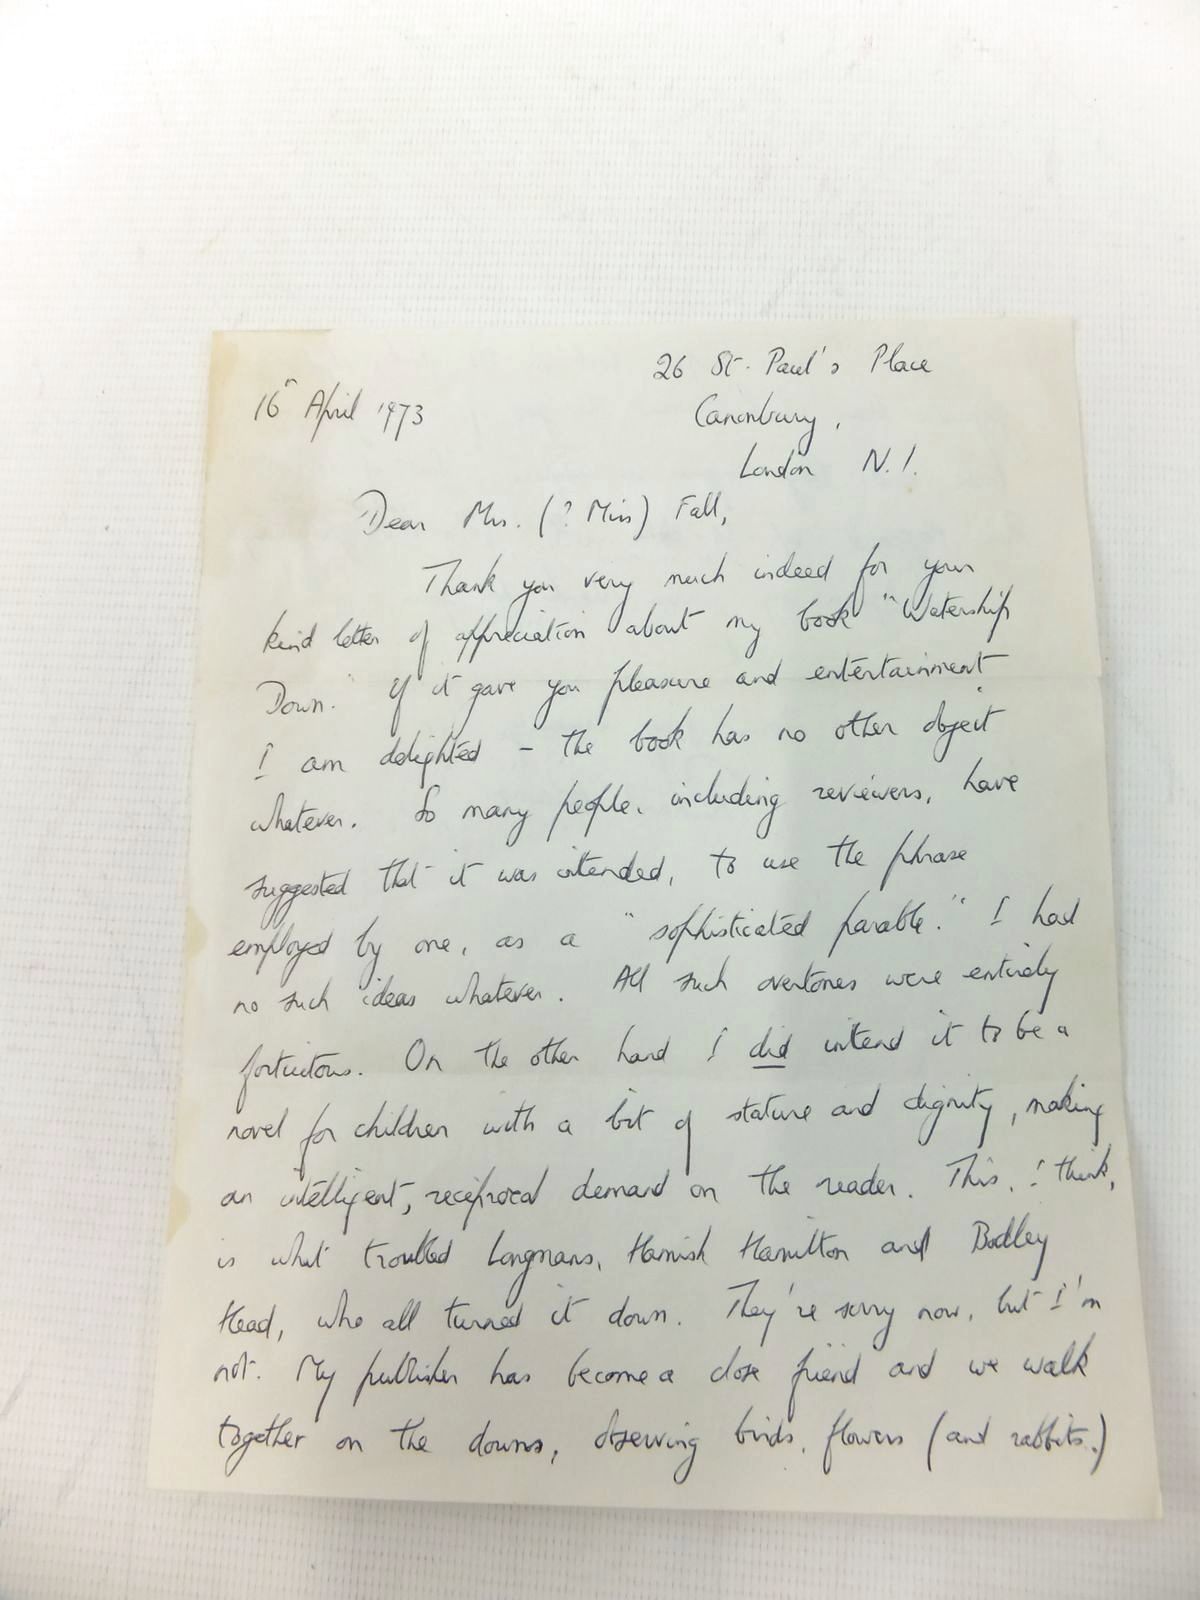 26 St. Paul's Place
16th April 1973
Canonbury,
London N.1.
Dear Mrs. (? Miss) Fall,
Thank you very much indeed for your
kind letter of appreciation about my book "Watership
Down." If it gave you pleasure and entertainment
I am delighted - the book has no other object
whatever. So many people, including reviewers, have
suggested that it was intended, to use the phrase
employed by one, as a "sophisticated parable." I had
no such ideas whatever. All such overtones were entirely
fortuitous. On the other hand I did intend it to be a
novel for children with a bit of stature and dignity, making
an intelligent, reciprocal demand on the reader. This, I think,
is what troubled Longmans, Hamish Hamilton and Bodley
Head, who all turned it down. They're sorry now, but I'm
not. My publisher has become a close friend and we walk
together on the downs, observing birds, flowers (and rabbits.)